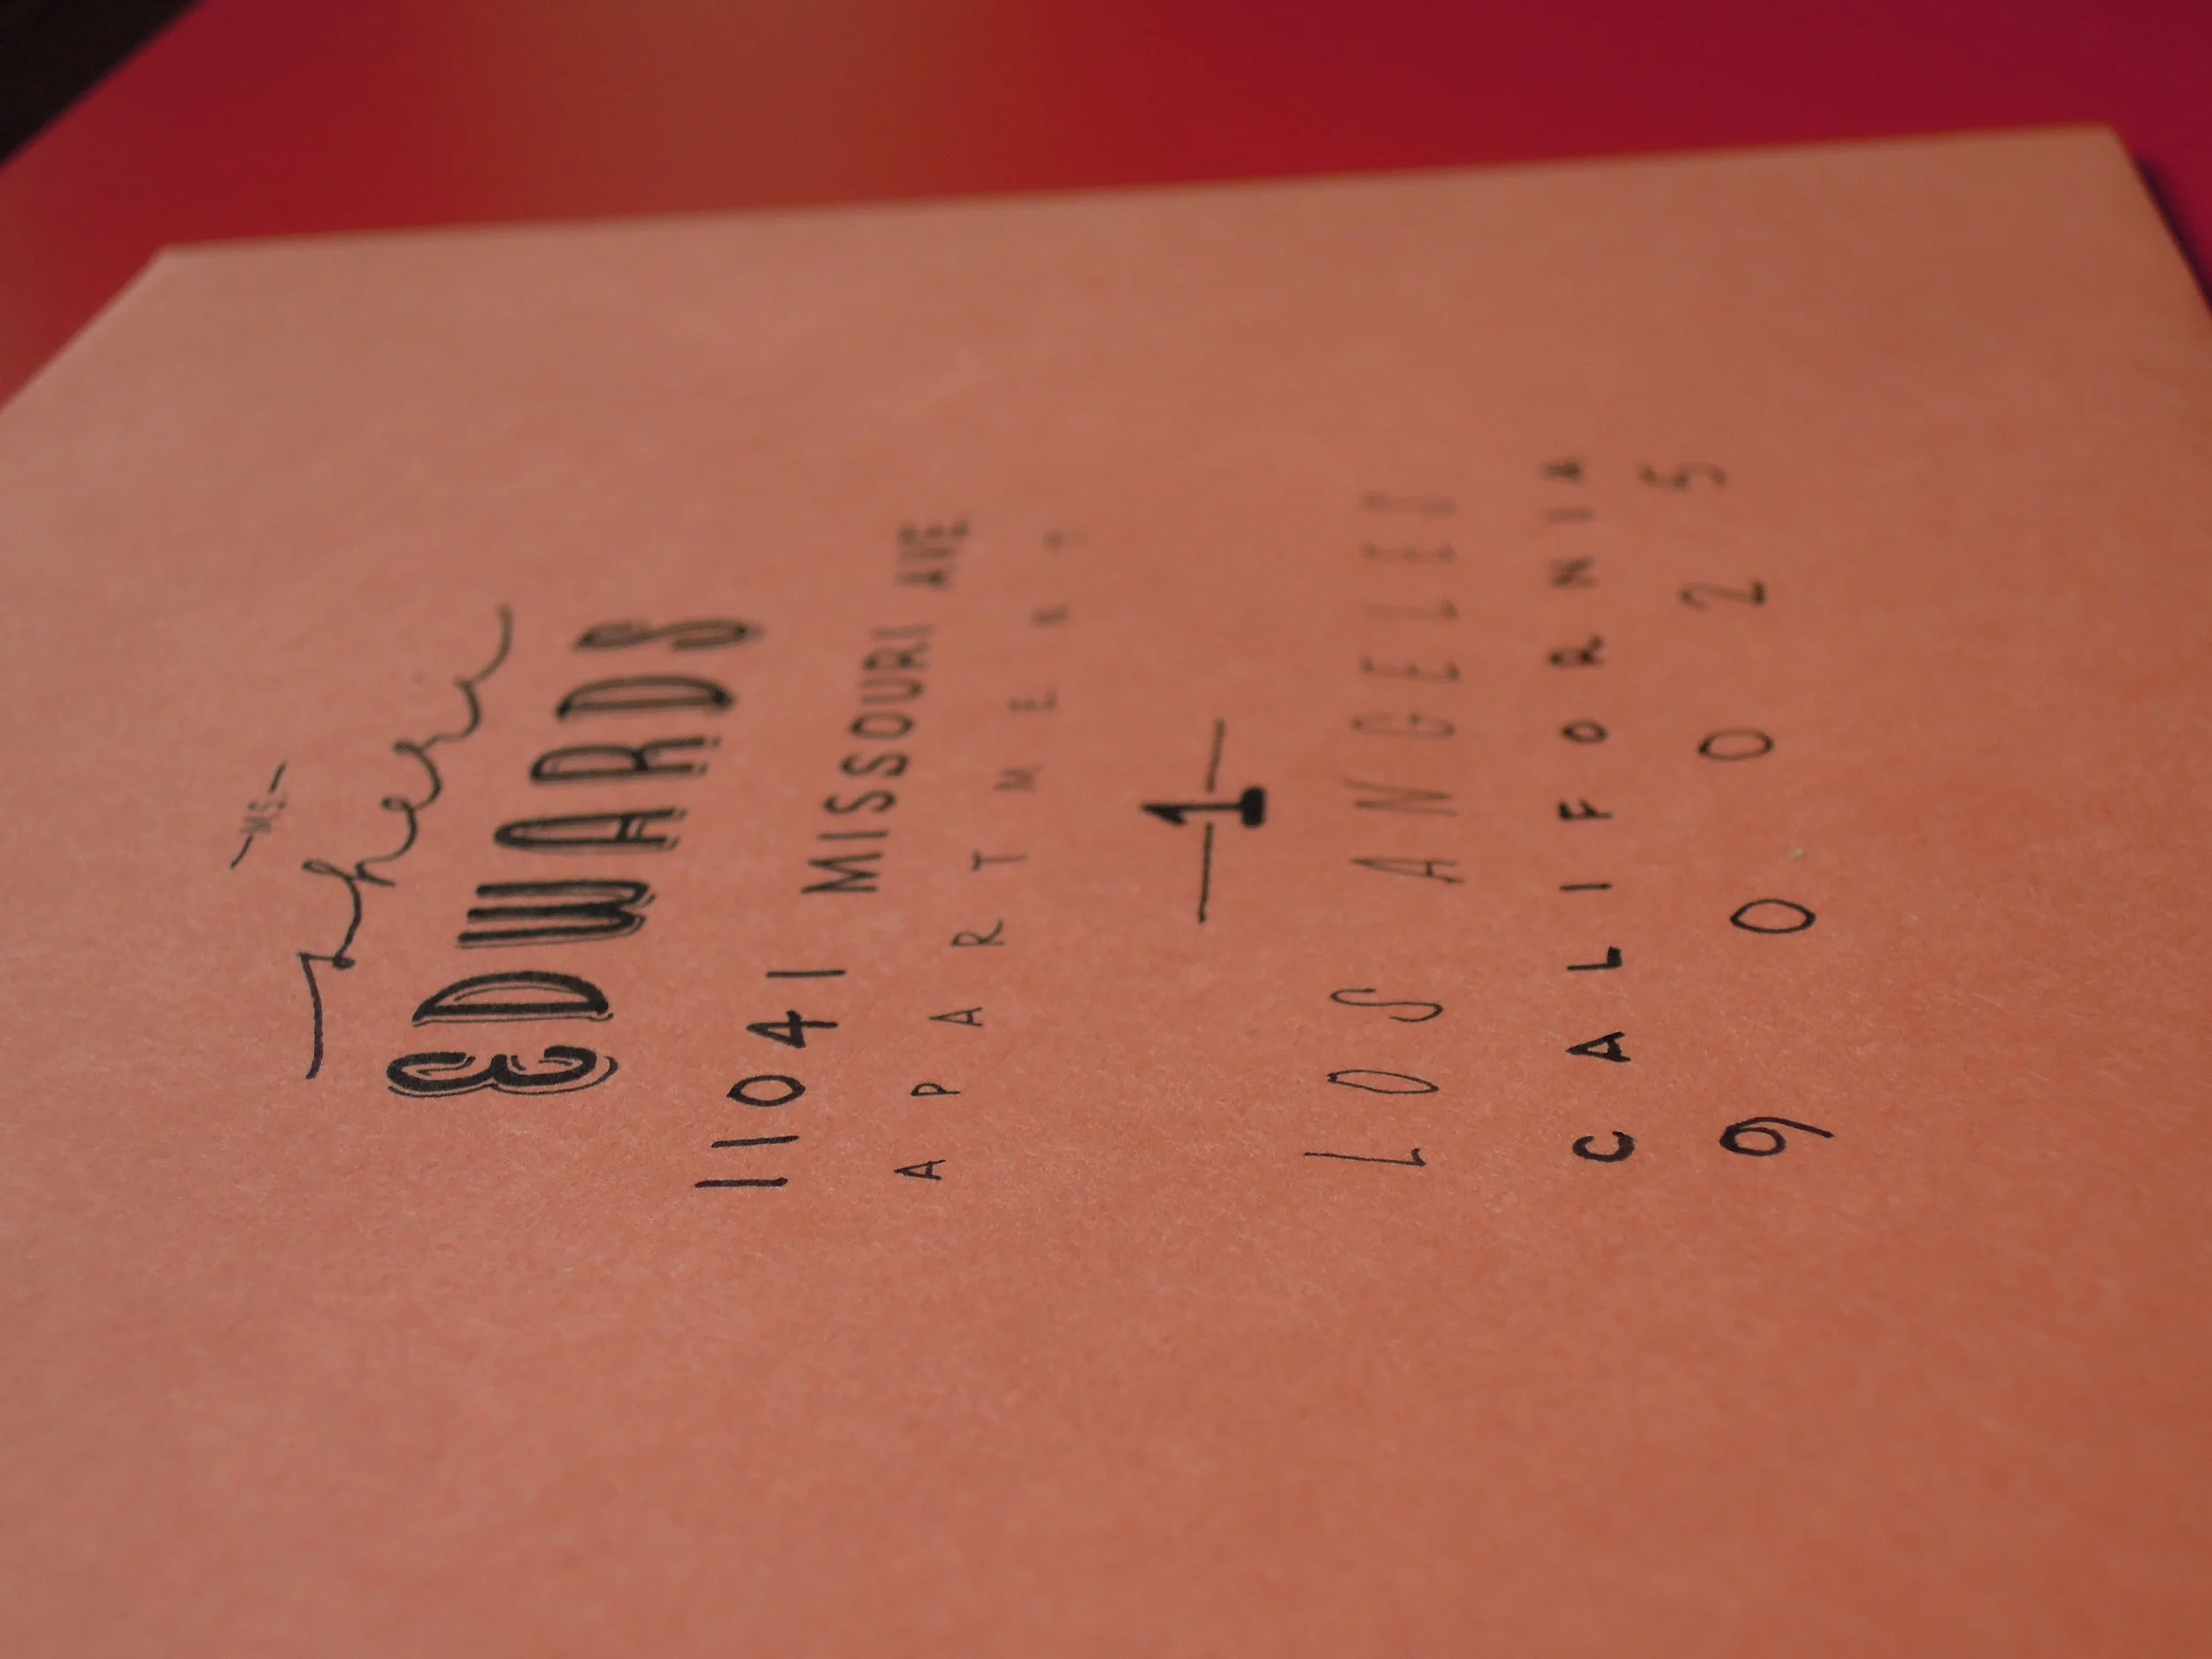 -MS-
Sheri
EDWARDS
11041 MISSOURI AVE
APARTMENT
-1-
LOS ANGELES
CALIFORNIA
90025